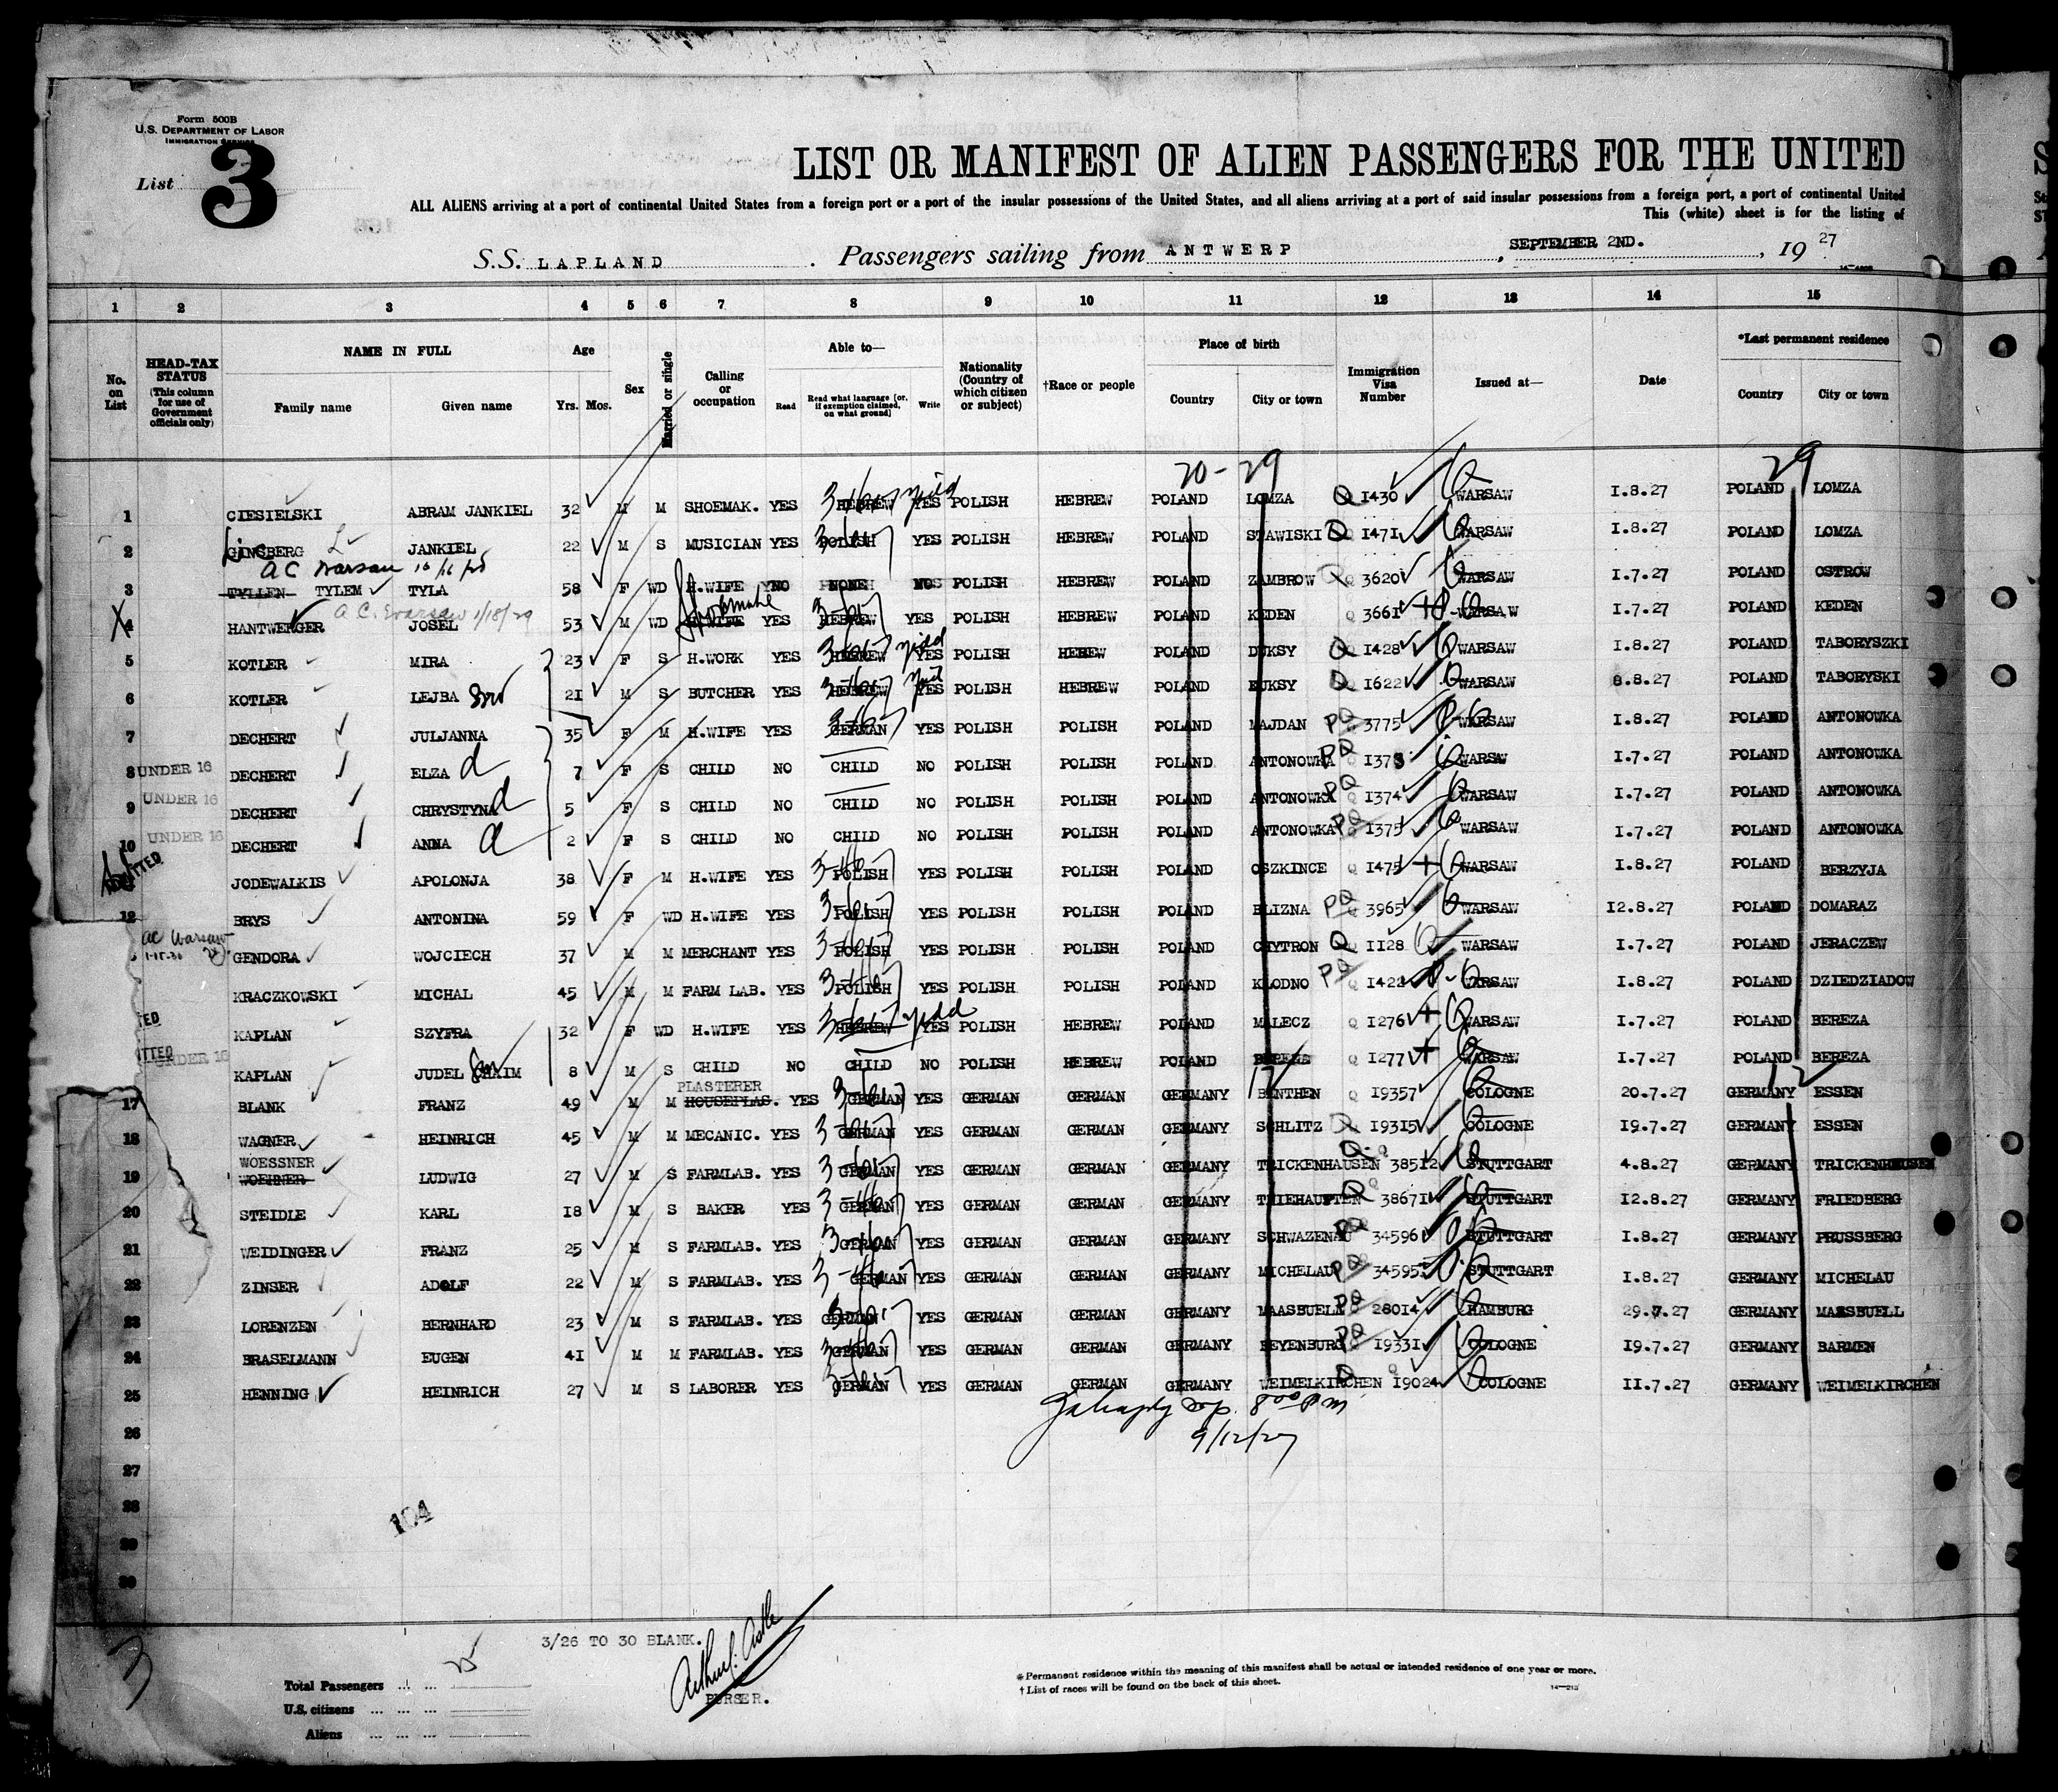 Form 500B
U.S. DEPARTMENT OF LABOR
IMMIGRATION SERVICE
List 3
LIST OR MANIFEST OF ALIEN PASSENGERS FOR THE UNITED
ALL ALIENS arriving at a port of continental United States from a foreign port or a port of the insular possessions of the United States, and all aliens arriving at a port of said insular possessions from a foreign port, a port of continental United
This (white) sheet is for the listing of
S.S. LAPLAND . Passengers sailing from ANTWERP , SEPTEMBER 2ND. , 19 27
1 2 3 4 5 6 7 8 9 10 11 12 13 14 15
No. on List
HEAD-TAX STATUS (This column for use of Government officials only)
NAME IN FULL Family name Given name
Age Yrs. Mos.
Sex
Married or single
Calling or occupation
Able to— Read Read what language (or, if exemption claimed, on what ground) Write
Nationality (Country of which citizen or subject)
†Race or people
Place of birth Country City or town
Immigration Visa Number
Issued at—
Date
*Last permanent residence Country City or town
20-29 29
1 CIESIELSKI ABRAM JANKIEL 32 M M SHOEMAK. YES HEBREW Yidd YES POLISH HEBREW POLAND LOMZA Q 1430 WARSAW 1.8.27 POLAND LOMZA
2 GINSBERG JANKIEL 22 M S MUSICIAN YES POLISH YES POLISH HEBREW POLAND STAWISKI Q 1471 WARSAW 1.8.27 POLAND LOMZA
AC Warsaw
3 TYLLEN TYLEM TYLA 58 F WD H.WIFE NO NONE POLISH HEBREW POLAND ZAMBROW Q 3620 WARSAW 1.7.27 POLAND OSTROW
4 HANTWERGER JOSEL 53 M WD H.WIFE YES HEBREW YES POLISH HEBREW POLAND KEDEN Q 3661 WARSAW 1.7.27 POLAND KEDEN
5 KOTLER MIRA 23 F S H.WORK YES HEBREW Yidd YES POLISH HEBREW POLAND DUKSY Q 1428 WARSAW 1.8.27 POLAND TABORYSZKI
6 KOTLER LEJBA 21 M S BUTCHER YES HEBREW YES POLISH HEBREW POLAND DUKSY Q 1622 WARSAW 8.8.27 POLAND TABORYSKI
7 DECHERT JULJANNA 35 F M H.WIFE YES GERMAN YES POLISH POLISH POLAND MAJDAN PQ 3775 WARSAW 1.8.27 POLAND ANTONOWKA
8 UNDER 16 DECHERT ELZA d 7 F S CHILD NO CHILD NO POLISH POLISH POLAND ANTONOWKA PQ 1373 WARSAW 1.7.27 POLAND ANTONOWKA
9 UNDER 16 DECHERT CHRYSTYNA d 5 F S CHILD NO CHILD NO POLISH POLISH POLAND ANTONOWKA PQ 1374 WARSAW 1.7.27 POLAND ANTONOWKA
10 UNDER 16 DECHERT ANNA d 2 F S CHILD NO CHILD NO POLISH POLISH POLAND ANTONOWKA PQ 1375 WARSAW 1.7.27 POLAND ANTONOWKA
JODEWALKIS APOLONJA 38 F M H.WIFE YES POLISH YES POLISH POLISH POLAND OSZKINCE Q 1475 WARSAW 1.8.27 POLAND BERZYJA
12 BRYS ANTONINA 59 F WD H.WIFE YES POLISH YES POLISH POLISH POLAND BLIZNA PQ 3965 WARSAW 12.8.27 POLAND DOMARAZ
AC Warsaw
GENDORA WOJCIECH 37 M M MERCHANT YES POLISH YES POLISH POLISH POLAND CHYTRON Q 1128 WARSAW 1.7.27 POLAND JERACZEW
KRACZKOWSKI MICHAL 45 M M FARM LAB. YES POLISH YES POLISH POLISH POLAND KLODNO PQ 1422 WARSAW 1.8.27 POLAND DZIEDZIADOW
KAPLAN SZYFRA 32 F WD H.WIFE YES HEBREW Yidd YES POLISH HEBREW POLAND MALECZ Q 1276 WARSAW 1.7.27 POLAND BEREZA
UNDER 16 KAPLAN JUDEL CHAIM 8 M S CHILD NO CHILD NO POLISH HEBREW POLAND BEREZA Q 1277 WARSAW 1.7.27 POLAND BEREZA
17 BLANK FRANZ 49 M M PLASTERER HOUSEPLAS. YES GERMAN YES GERMAN GERMAN GERMANY BENTHEN 19357 COLOGNE 20.7.27 GERMANY ESSEN
18 WAGNER HEINRICH 45 M M MECANIC. YES GERMAN YES GERMAN GERMAN GERMANY SCHLITZ Q 19315 COLOGNE 19.7.27 GERMANY ESSEN
19 WOESSNER WOEHNER LUDWIG 27 M S FARMLAB. YES GERMAN YES GERMAN GERMAN GERMANY TRICKENHAUSEN Q 38512 STUTTGART 4.8.27 GERMANY TRICKENHAUSEN
20 STEIDLE KARL 18 M S BAKER YES GERMAN YES GERMAN GERMAN GERMANY THIEHAUPTEN Q 38671 STUTTGART 12.8.27 GERMANY FRIEDBERG
21 WEIDINGER FRANZ 25 M S FARMLAB. YES GERMAN YES GERMAN GERMAN GERMANY SCHWAZENAU PQ 34596 STUTTGART 1.8.27 GERMANY PRUSSBERG
22 ZINSER ADOLF 22 M S FARMLAB. YES GERMAN YES GERMAN GERMAN GERMANY MICHELAU PQ 34595 STUTTGART 1.8.27 GERMANY MICHELAU
23 LORENZEN BERNHARD 23 M S FARMLAB. YES GERMAN YES GERMAN GERMAN GERMANY MAASBUELL PQ 28014 HAMBURG 29.7.27 GERMANY MAASBUELL
24 BRASELMANN EUGEN 41 M M FARMLAB. YES GERMAN YES GERMAN GERMAN GERMANY BEYENBURG PQ 19331 COLOGNE 19.7.27 GERMANY BARMEN
25 HENNING HEINRICH 27 M S LABORER YES GERMAN YES GERMAN GERMAN GERMANY WEIMELKIRCHEN Q 19024 COLOGNE 11.7.27 GERMANY WEIMELKIRCHEN
26 9/12/27
27
28
104
29
30
3
3/26 TO 30 BLANK.
PURSER.
Total Passengers ... ...
U.S. citizens ... ... ...
Aliens ... ... ...
*Permanent residence within the meaning of this manifest shall be actual or intended residence of one year or more.
†List of races will be found on the back of this sheet.